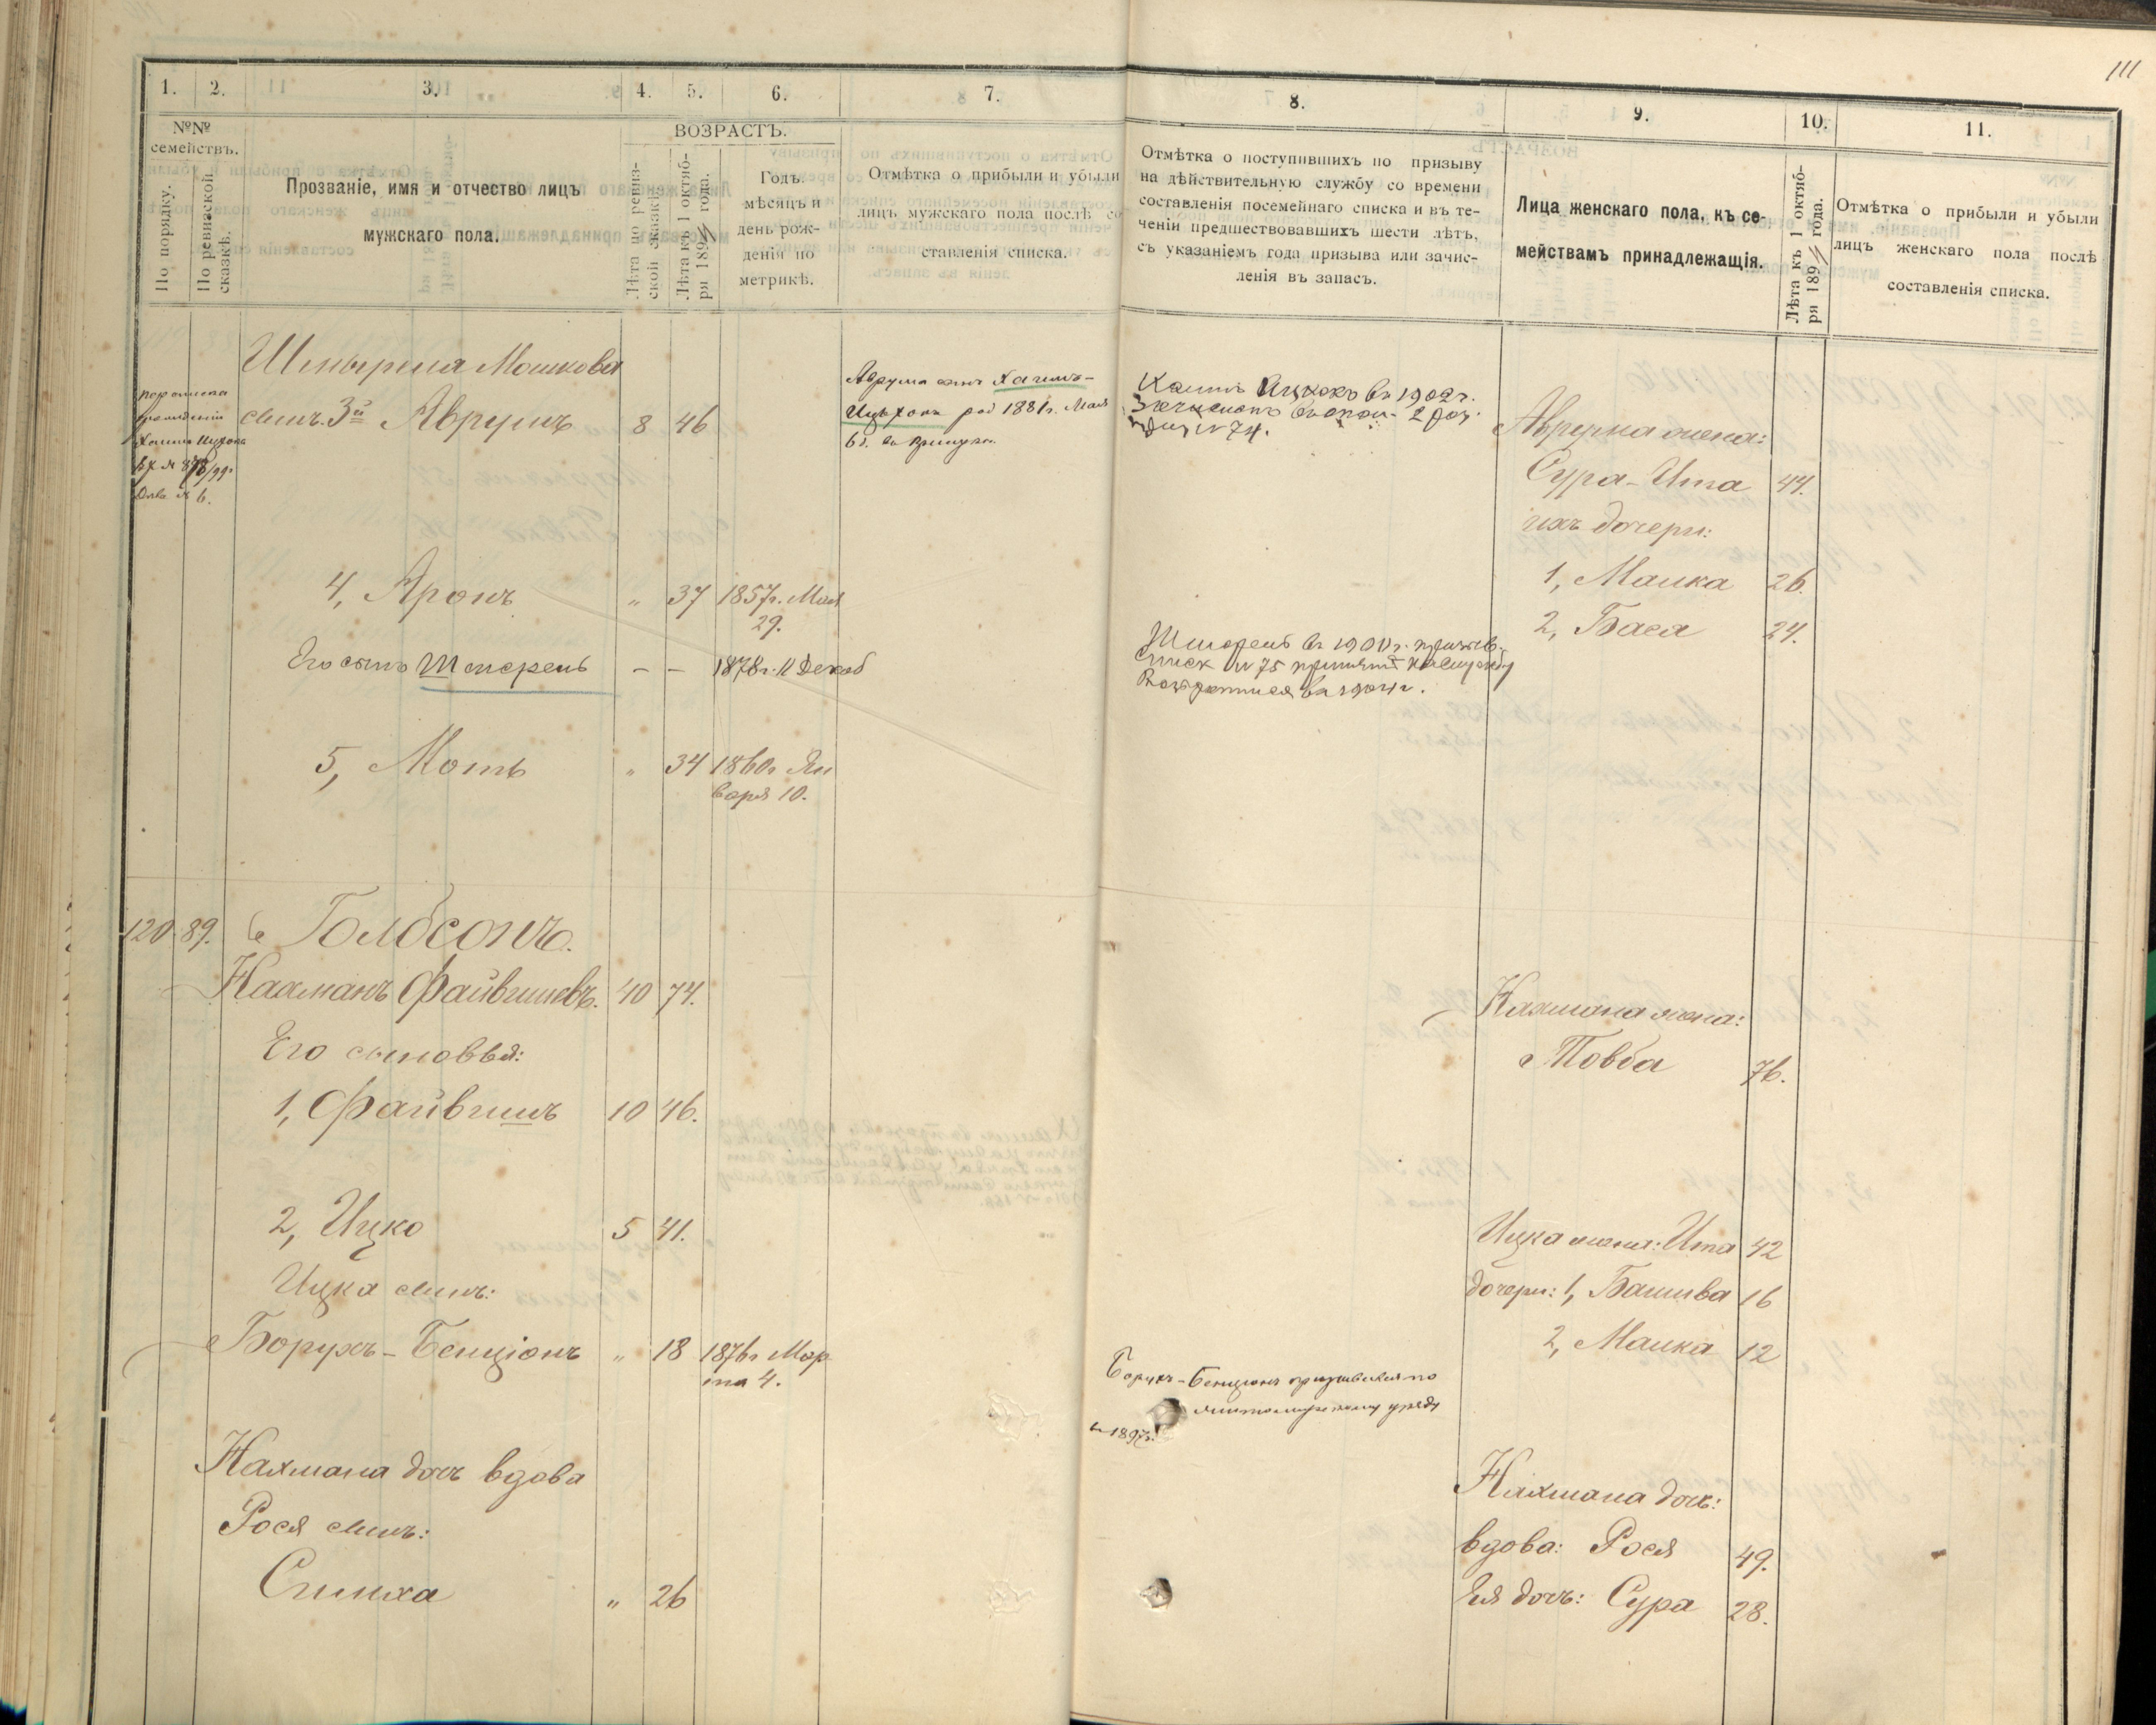 111
1.
2.
3.
4.
5.
6.
7.
8.
9.
10.
11.
№№
семействъ.
По порядку.
По ревизской
сказкѣ.
Прозваніе, имя и отчество лицъ
мужскаго пола.
ВОЗРАСТЪ.
Лѣта по ревиз-
ской сказкѣ.
Лѣта къ 1 октяб-
ря 1894 года.
Годъ,
мѣсяцъ и
день рож-
денія по
метрикѣ.
Отмѣтка о прибыли и убыли
лицъ мужскаго пола послѣ со-
ставленія списка.
Отмѣтка о поступившихъ по призыву
на дѣйствительную службу со времени
составленія посемейнаго списка и въ те-
ченіи предшествовавшихъ шести лѣтъ,
съ указаніемъ года призыва или зачис-
ленія въ запасъ.
Лица женскаго пола, къ се-
мействамъ принадлежащія.
Лѣта къ 1 октяб-
ря 1894 года.
Отмѣтка о прибыли и убыли
лицъ женскаго пола послѣ
составленія списка.
Шмырша Мошкова
сынъ 3й Аврумъ 8 46
Хаима Ицхока
№ 6.
Аврума сынъ Хаимъ-
Ицхокъ род 1881г. Мая
6 д.
Хаимъ Ицхокъ въ 1902 г.
№ 74.
Аврума жена:
Сура-Ита 44.
ихъ дочери:
1, Малка 26.
2, Бася 24.
4, Аронъ " 37 1857г. Мая
29.
Его сынъ Шмерель – – 1878г. 11 Декаб
Шмерель въ 1900 г. призыв.
списк № 75 принятъ на службу
въ 1904 г.
5, Моть " 34 1860г Ян
варя 10.
120. 89. Голбсонъ.
Нахманъ Файвишевъ. 40 74.
Его сыновья:
1, Файвишъ 10 46.
Нахмана жена:
Товба 76.
2, Ицко 5 41.
Ицка сынъ:
Борухъ-Бенціонъ " 18 1876г Мар
та 4.
Борухъ-Бенціонъ призывался по
житомирскому уѣзду
въ 1897г.
Ицка жена: Ита 42
дочери: 1, Башива 16
2, Малка 12
Нахмана дочь вдова
Рося сынъ:
Симха " 26
Нахмана дочь:
вдова: Рося 49.
Ея дочь: Сура 28.